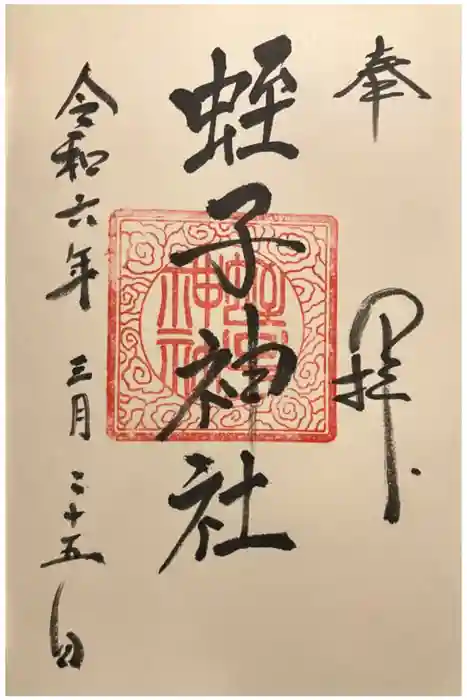 奉拝
蛭子神社
令和六年三月二十五日